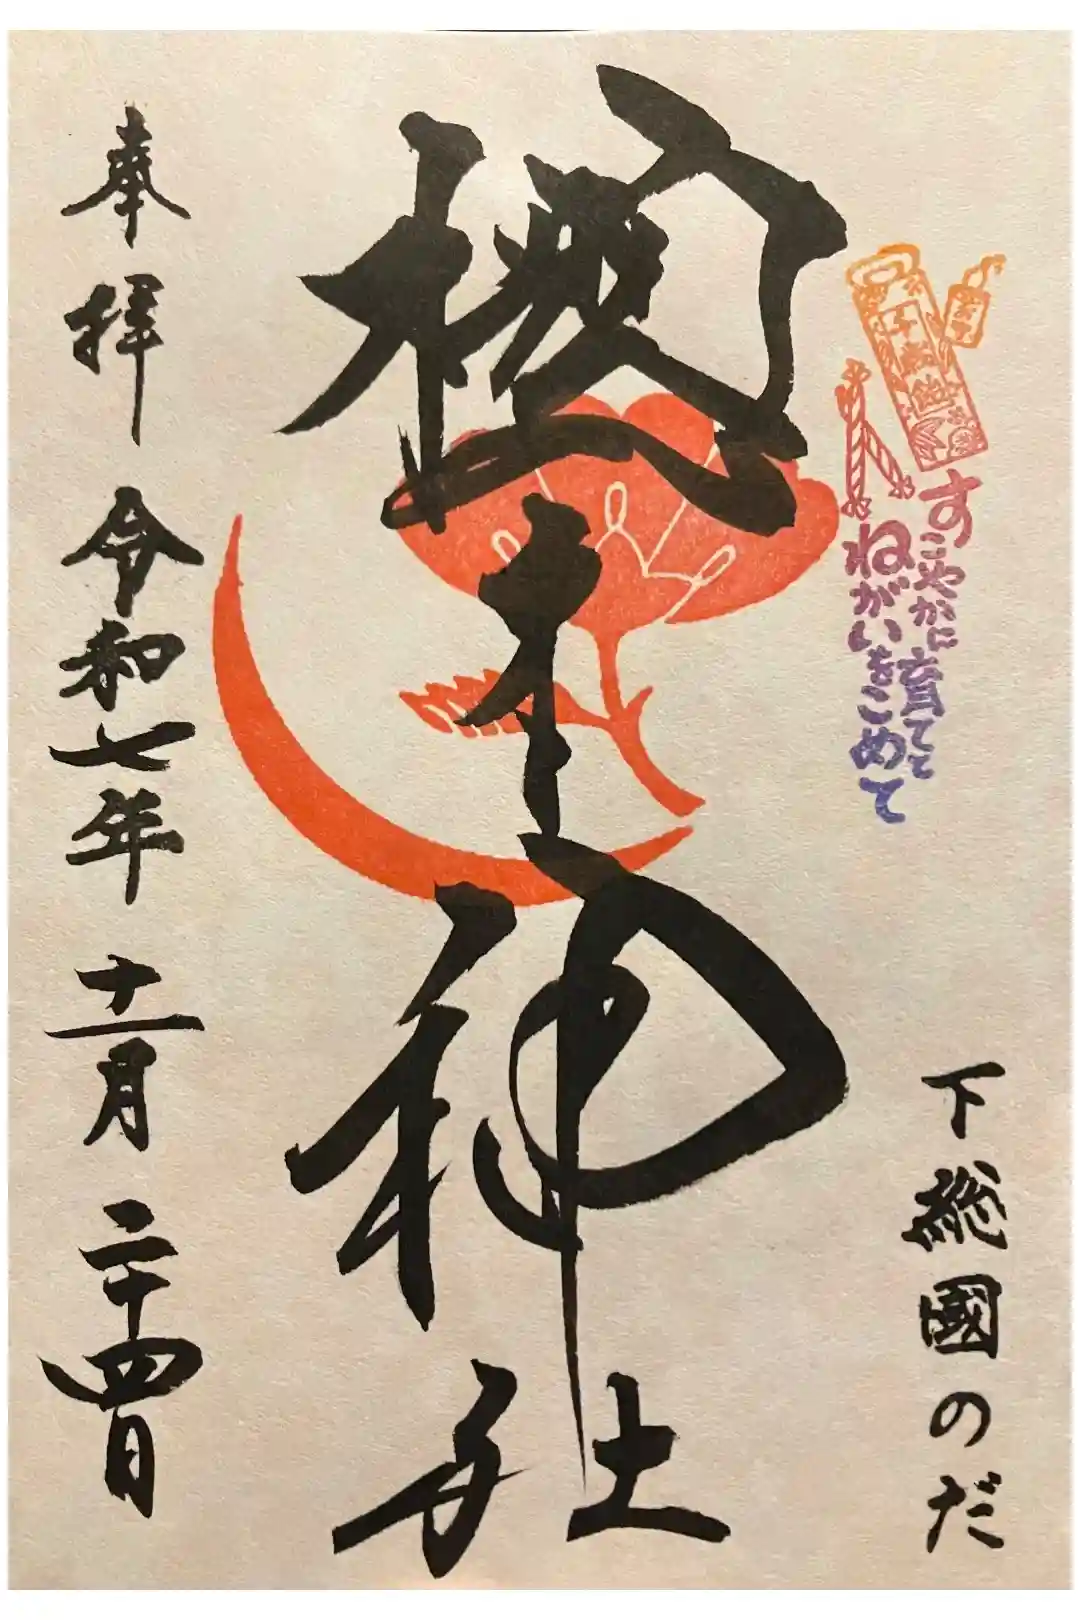 子歳飴
すこやかに育てて
ねがいをこめて
下総國のだ
櫻木神社
奉拝 令和七年 十一月 二十四日